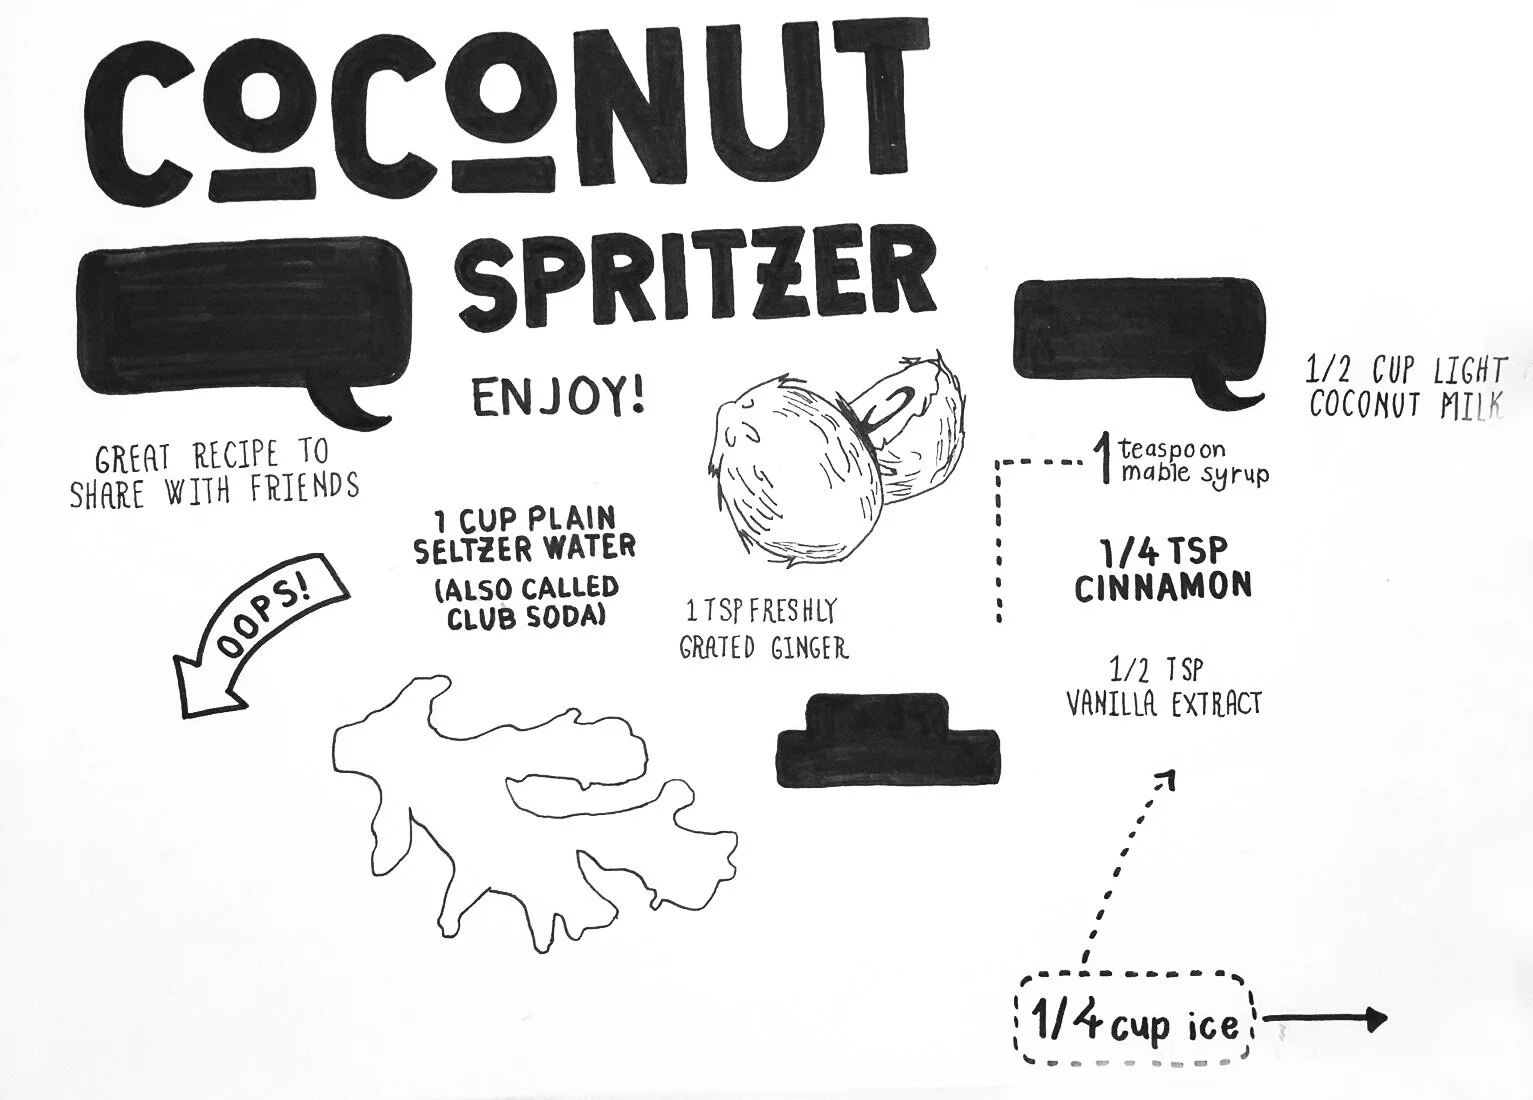 COCONUT
SPRITZER
ENJOY!
GREAT RECIPE TO
SHARE WITH FRIENDS
1 CUP PLAIN
SELTZER WATER
(ALSO CALLED
CLUB SODA)
OOPS!
1 TSP FRESHLY
GRATED GINGER
1/2 CUP LIGHT
COCONUT MILK
1 teaspoon
mable syrup
1/4 TSP
CINNAMON
1/2 TSP
VANILLA EXTRACT
1/4 cup ice